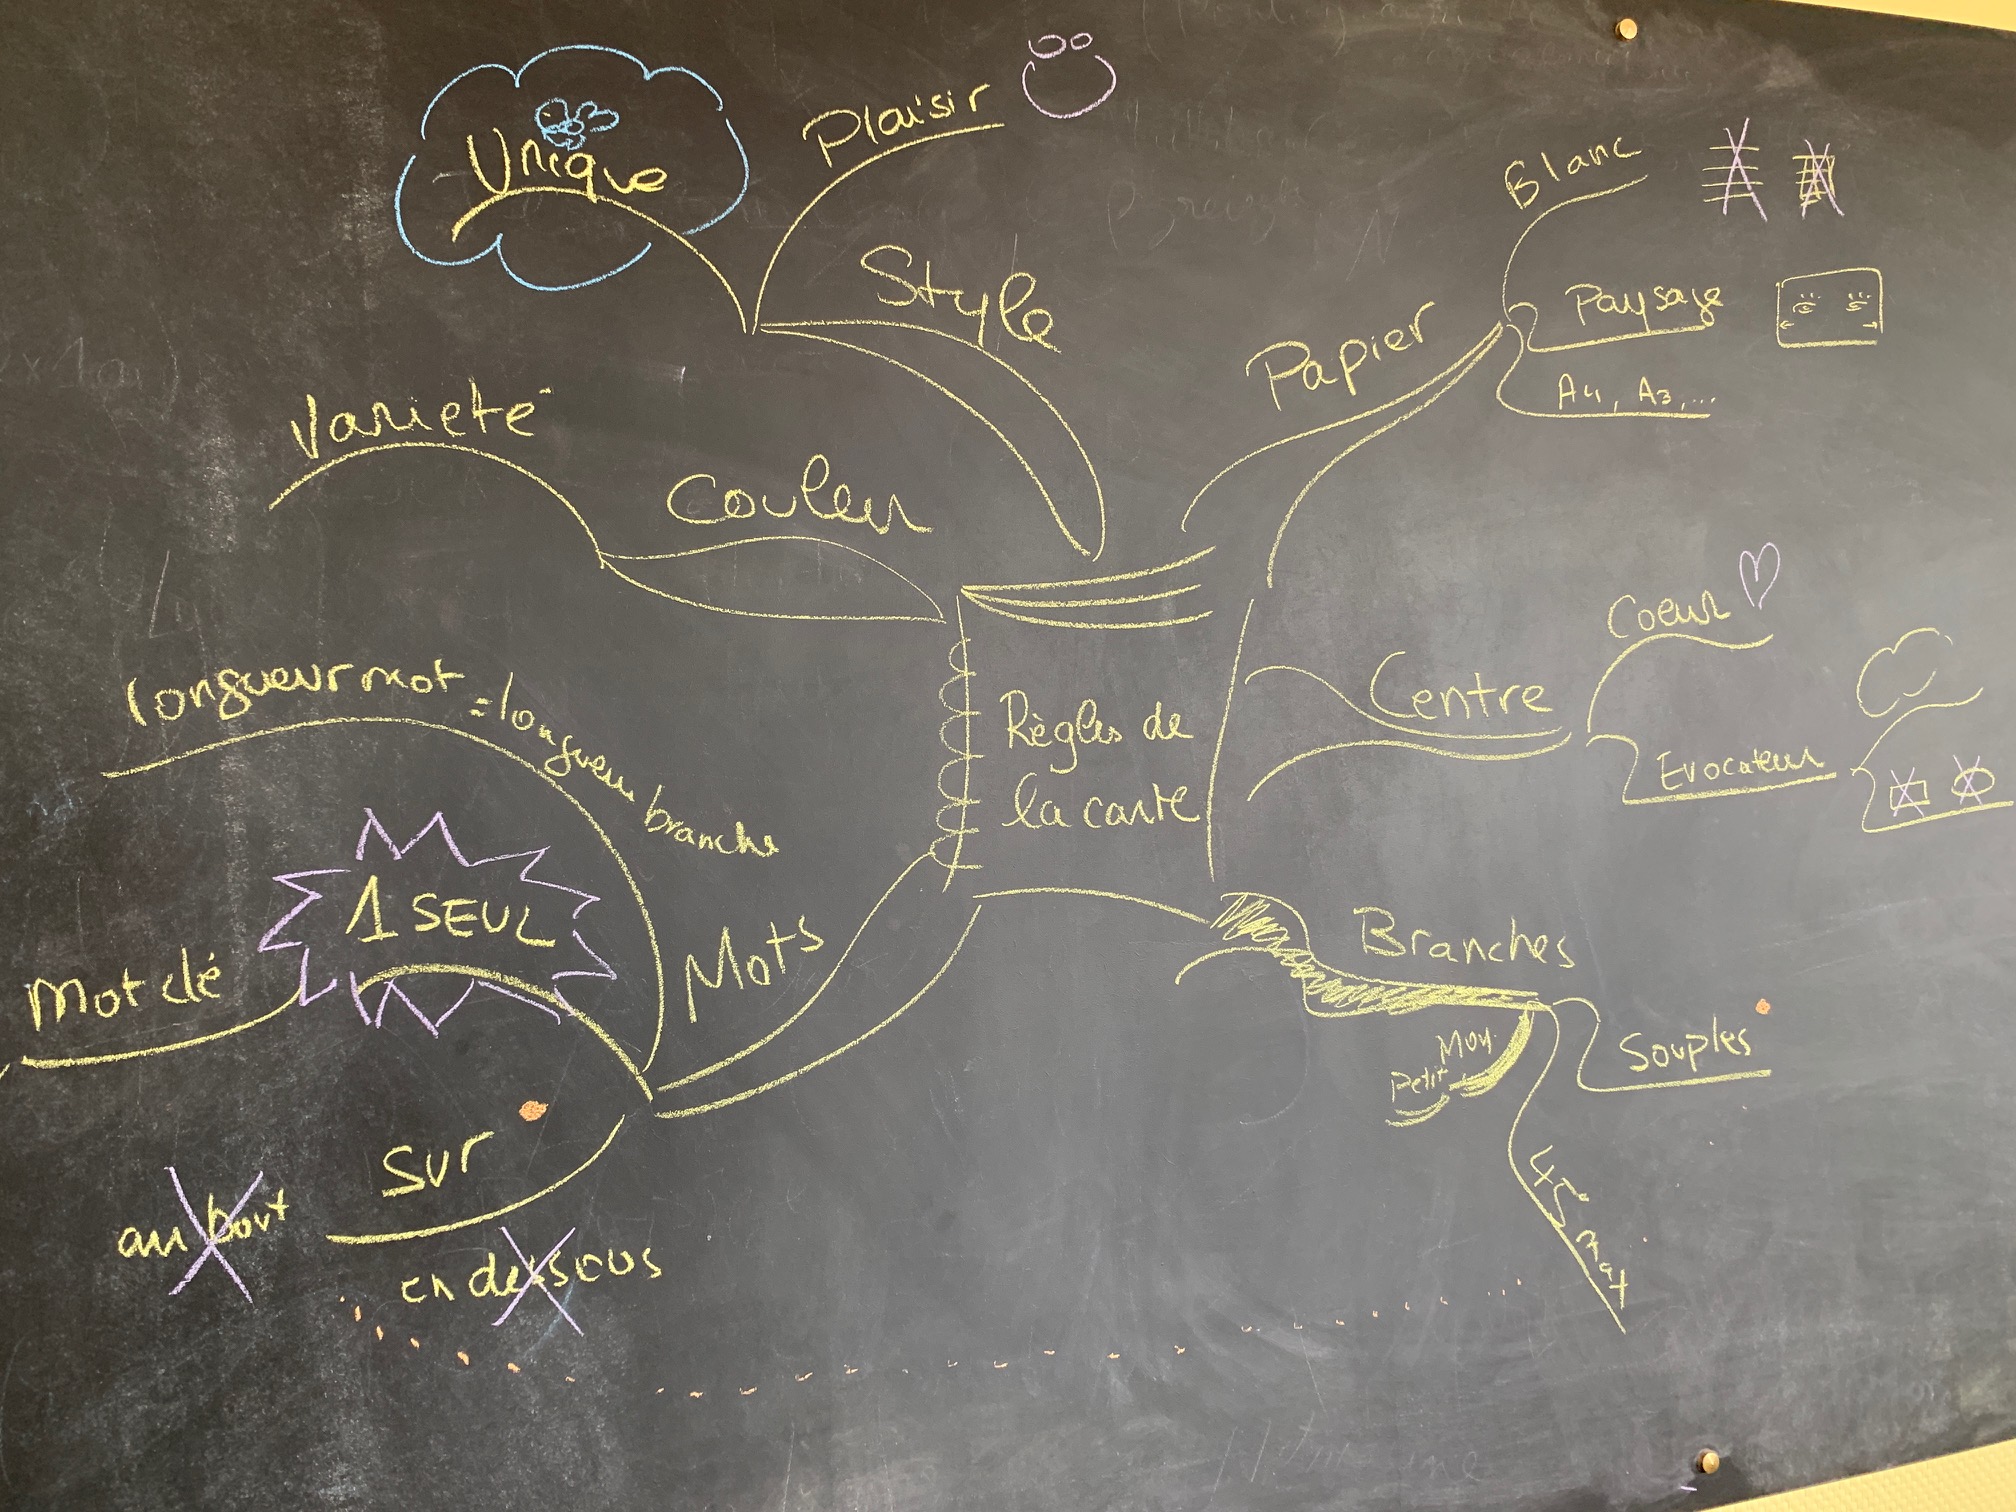 Unique
Plaisir
Style
Variété
Couleur
Longueur mot = longueur branche
1 SEUL
Mot clé
Mots
Sur
au bout
en dessous
Règles de
la carte
Papier
Blanc
Paysage
A4, A3,...
Centre
Coeur
Evocateur
Branches
Moy.
Petit
Souples
45°